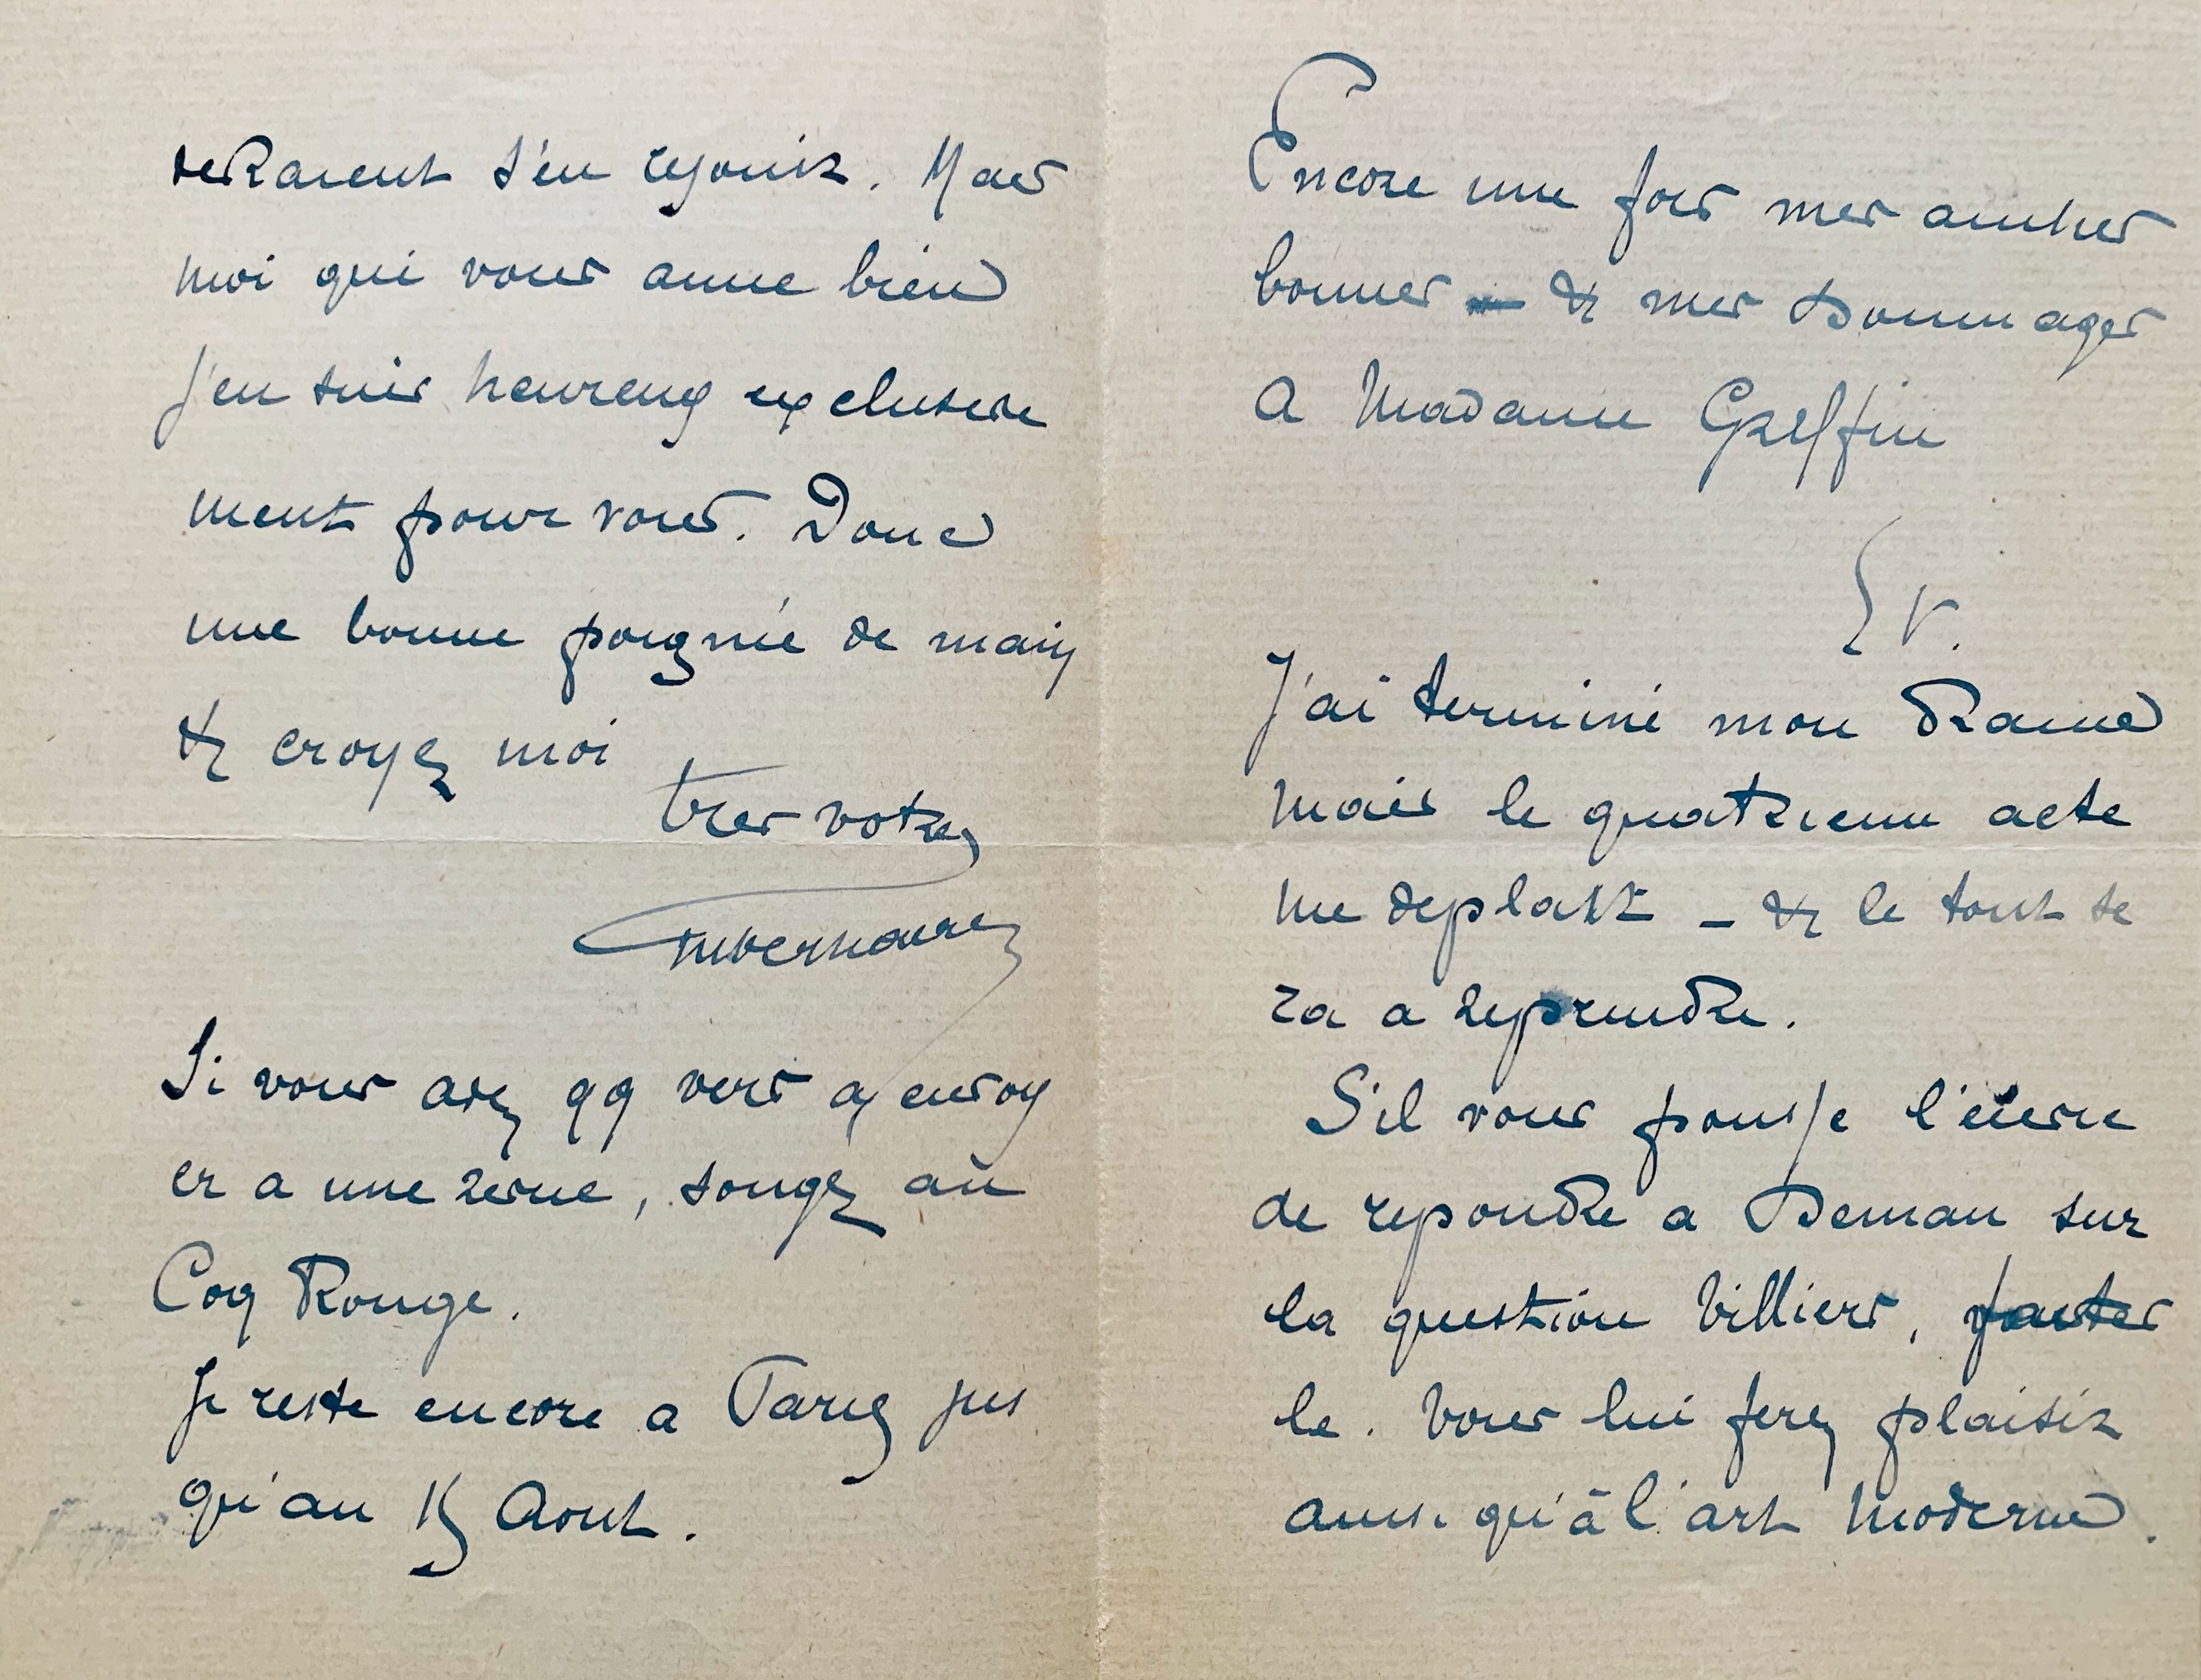 devraient s'en rejouir. Mais
moi qui vous aime bien
j'en suis heureux exclusive
ment pour vous. Donc
une bonne poignée de main
& croyez moi
tres votre
EmVerhaeren
Si vous avez qq vers a envoy
er a une revue, songez au
Coq Rouge.
Je reste encore a Paris jus
qu'au 15 Aout.
Encore une fois mes amities
bonnes - & mes hommages
a Madame Griffin
E V.
J'ai terminé mon drame
mais le quatrieme acte
me deplait - & le tout se
ra a reprendre.
S'il vous pousse l'envie
de repondre a Deman sur
la question Villiers, faites
le. Vous lui ferez plaisir
ainsi qu'à l'art moderne.